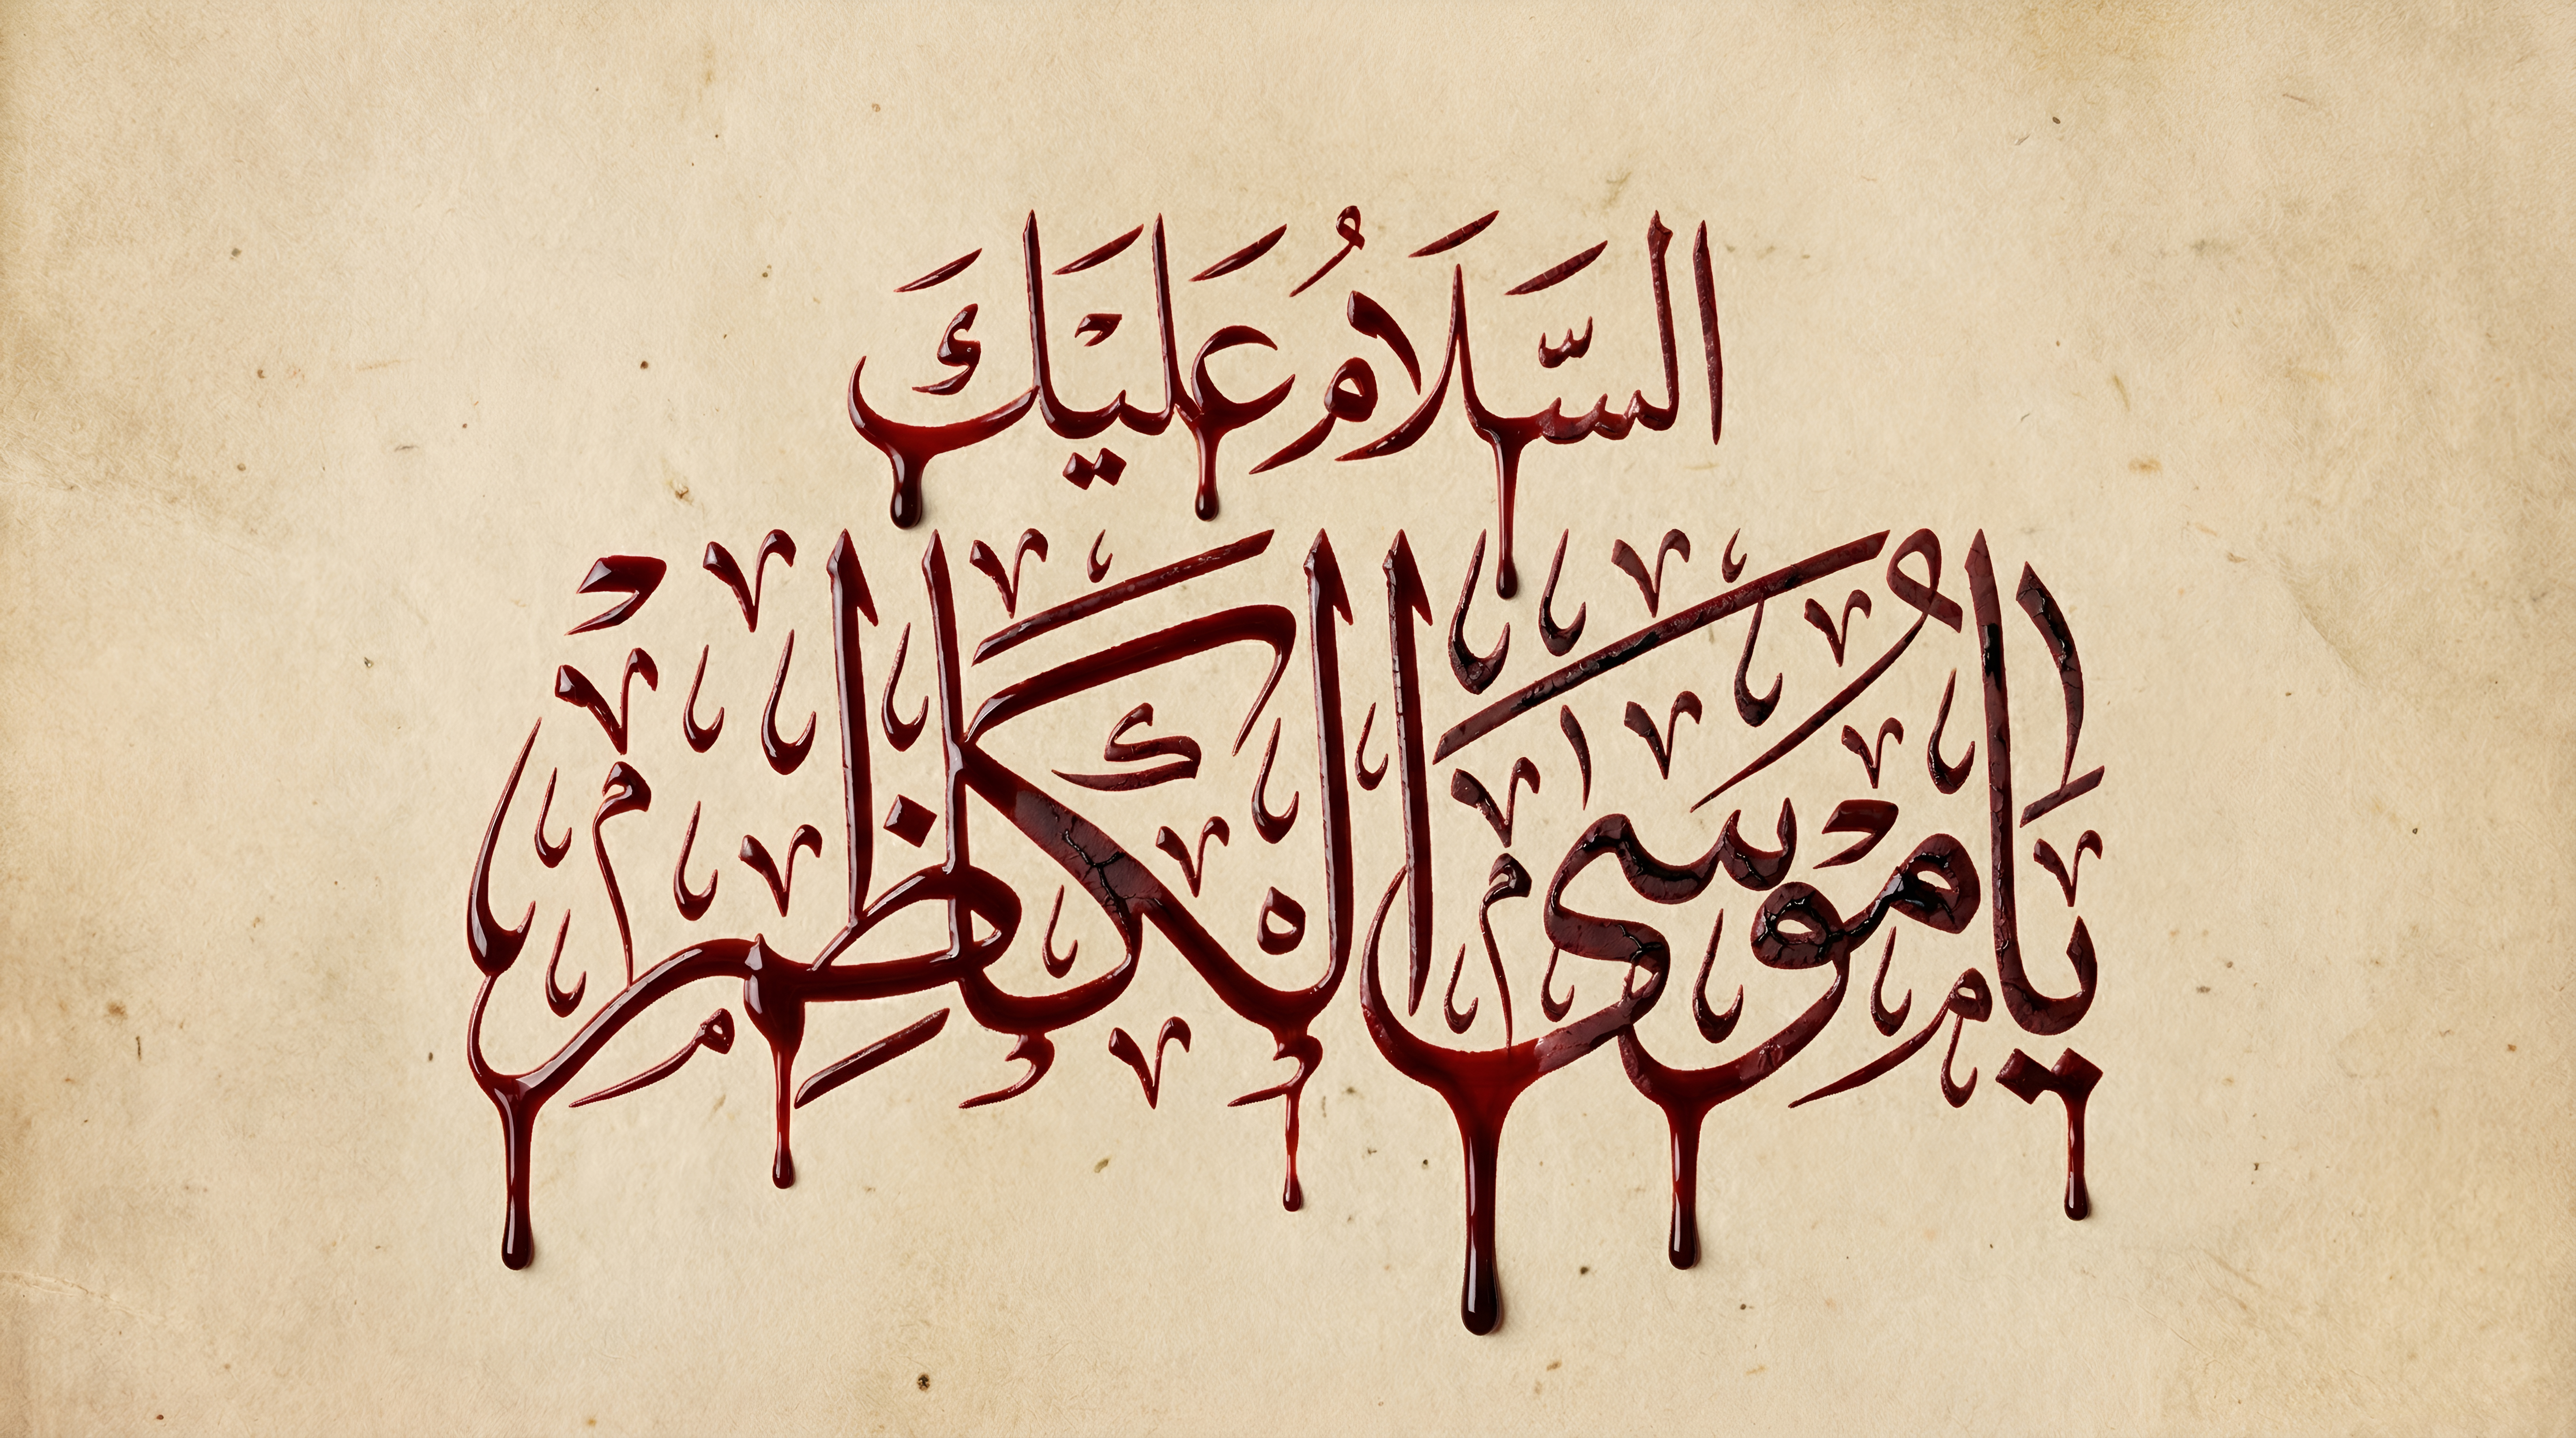 السَّلَامُ عَلَيْكَ
يَا مُوسَى الْكَاظِمْ